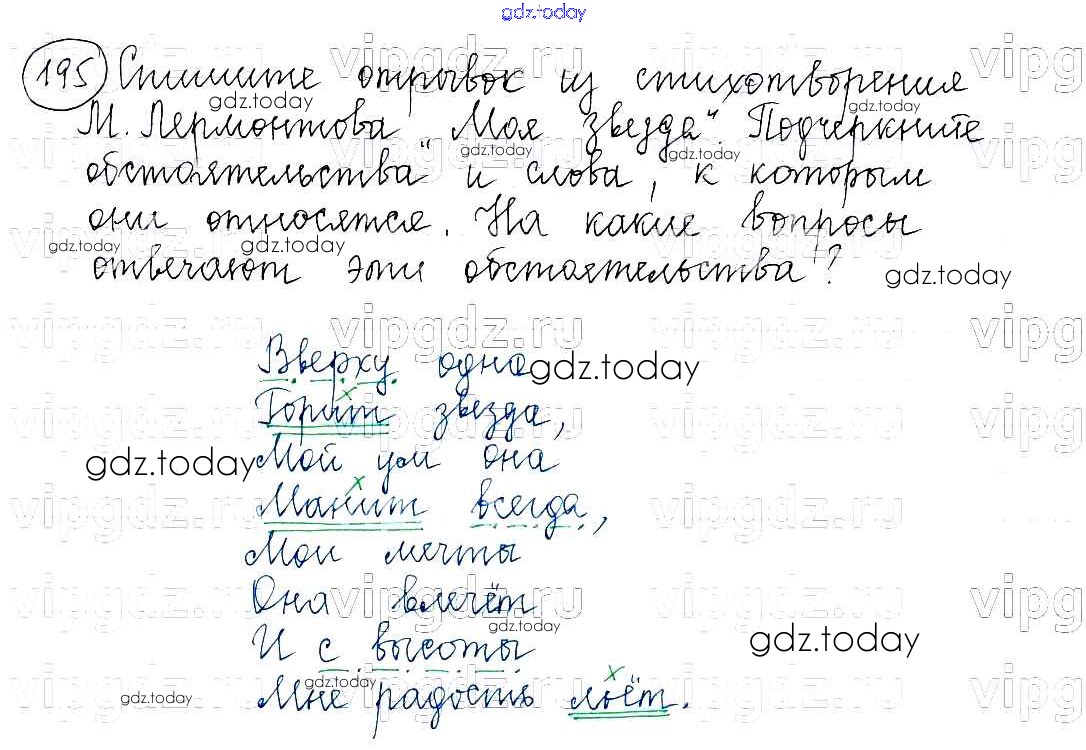 gdz.today
195 Спишите отрывок из стихотворения
М. Лермонтова „Моя звезда“. Подчеркните
обстоятельства и слова, к которым
они относятся. На какие вопросы
отвечают эти обстоятельства?
Вверху одна
Горит звезда,
Мой ум она
Манит всегда,
Мои мечты
Она влечёт
И с высоты
Мне радость льёт.